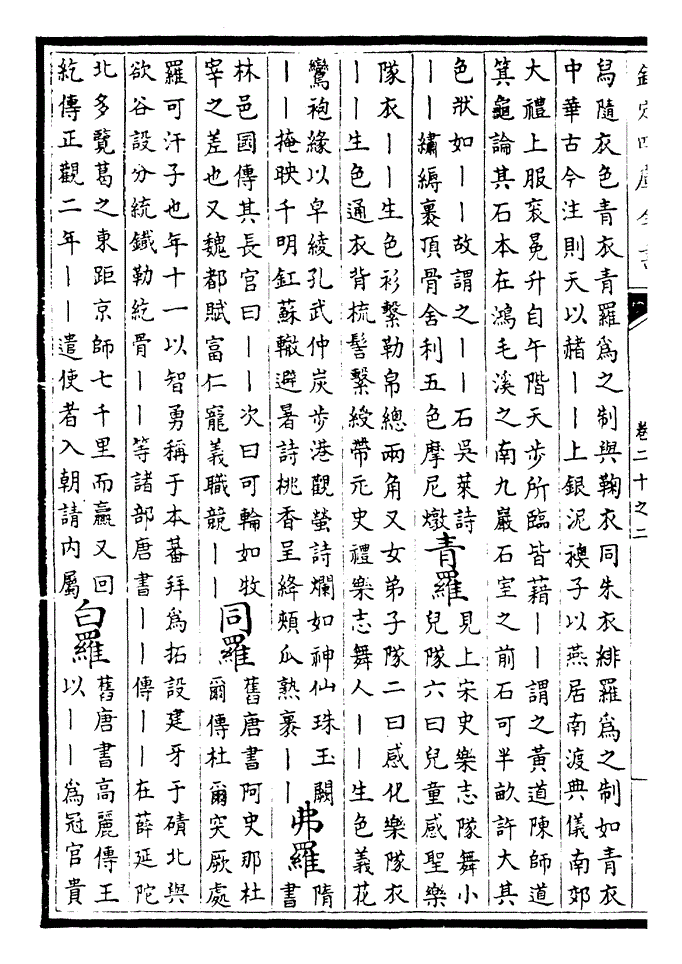 欽定四庫全書
卷二十之二
舄隨衣色青衣青羅爲之制與鞠衣同朱衣緋羅爲之制如青衣
中華古今注則天以赭丨丨上銀泥襖子以燕居南渡典儀南郊
大禮上服袞冕升自午階天步所臨皆藉丨丨謂之黃道陳師道
箕龜論其石本在鴻毛溪之南九巖石室之前石可半畝許大其
色狀如丨丨故謂之丨丨石吳萊詩
丨丨繡縟裹頂骨舍利五色摩尼燉
青羅
見上宋史樂志隊舞小
兒隊六曰兒童感聖樂
隊衣丨丨生色衫繫勒帛總兩角又女弟子隊二曰感化樂隊衣
丨丨生色通衣背梳髻繫綬帶元史禮樂志舞人丨丨生色義花
鸞袍緣以皁綾孔武仲炭步港觀螢詩爛如神仙珠玉闕
丨丨掩映千明釭蘇轍避暑詩桃香呈絳頰瓜熟裹丨丨
弗羅
隋
書
林邑國傳其長官曰丨丨次曰可輪如牧
宰之差也又魏都賦富仁寵義職競丨丨
同羅
舊唐書阿史那杜
爾傳杜爾突厥處
羅可汗子也年十一以智勇稱于本蕃拜爲拓設建牙于磧北與
欲谷設分統鐵勒紇骨丨丨等諸部唐書丨丨傳丨丨在薛延陀
北多覽葛之東距京師七千里而贏又回
紇傳正觀二年丨丨遣使者入朝請内屬
白羅
舊唐書高麗傳王
以丨丨爲冠官貴